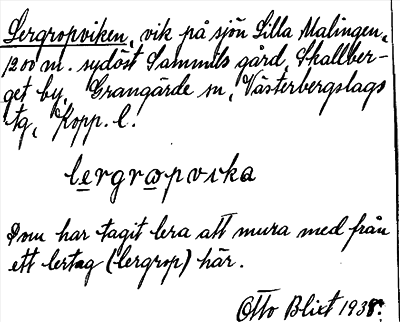 Lergropviken, vik på sjön Lilla Malingen,
1200 m. sydöst Sammils gård, Skallber-
get by, Grangärde sn, Västerbergslags
tg, Kopp. l.
lergropvika
Dom har tagit lera att mura med från
ett lertag (lergrop) här.
Otto Blixt 1938.